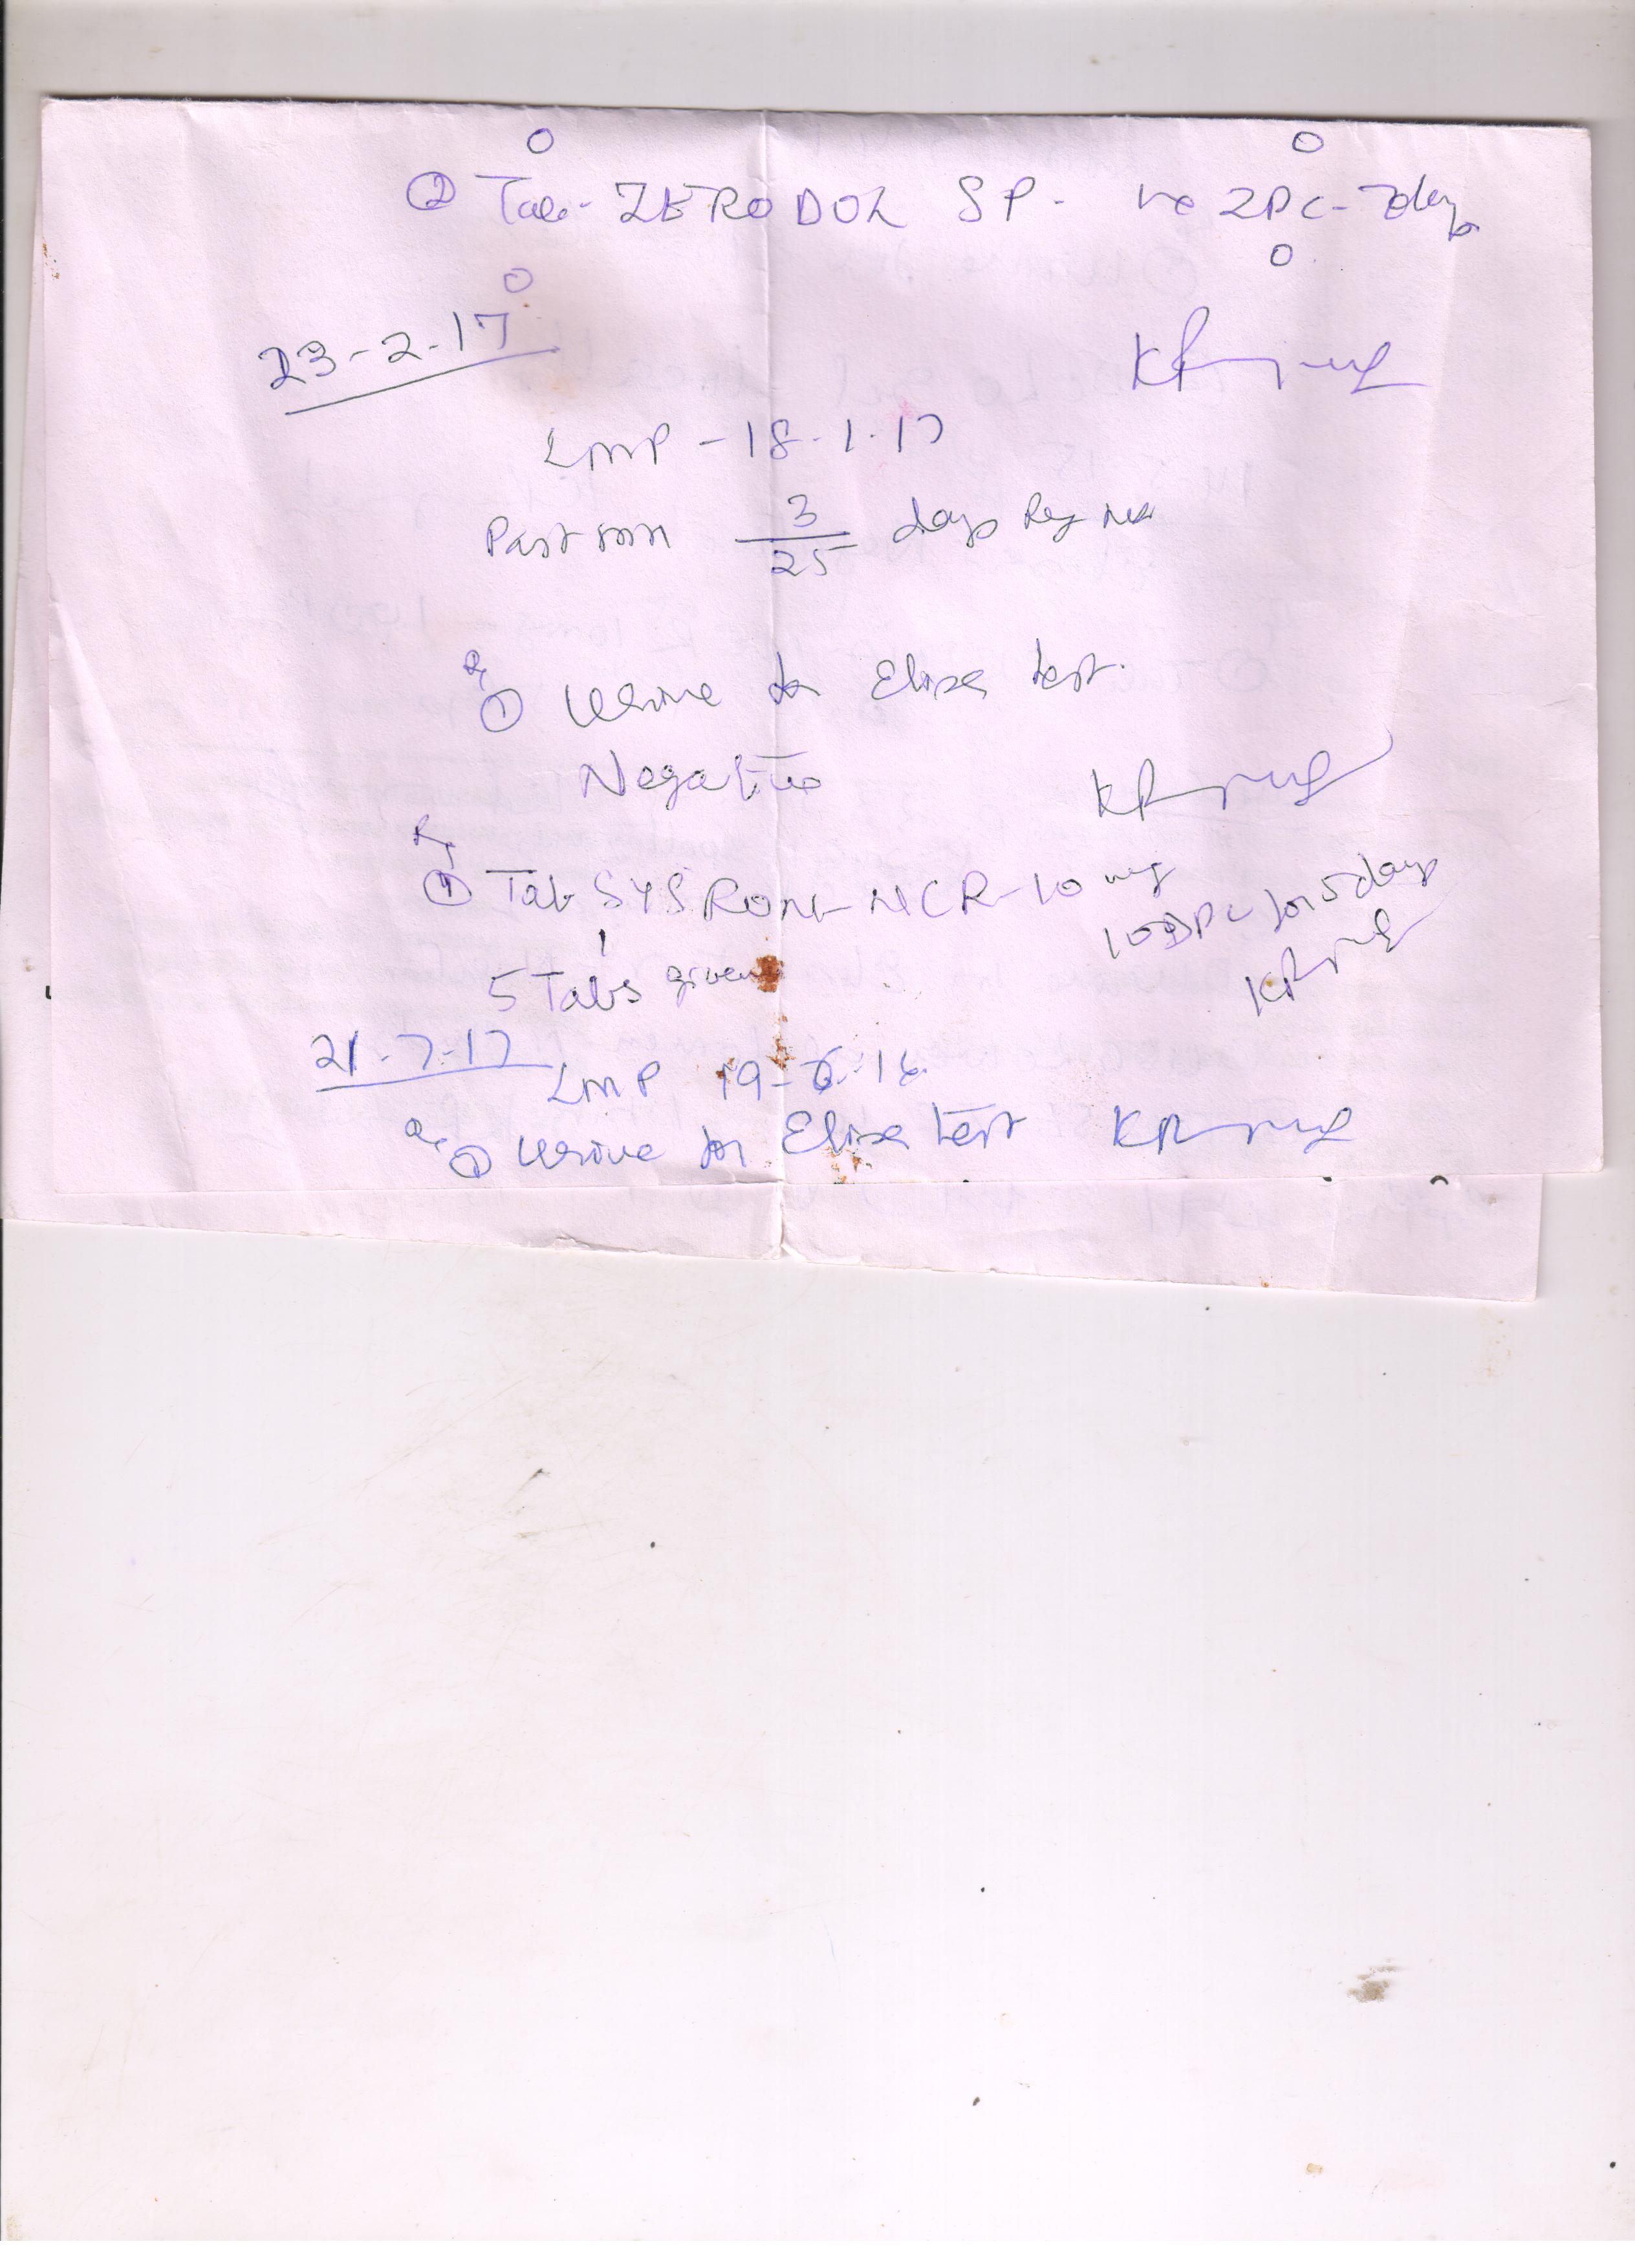 ② Tab- ZERODOL SP - 2PC - 7days
23-2-17
LMP - 18-1-17
Past mm 3/25 days Reg
Rx
① Urine for Elisa test.
Negative
Rx
① Tab SYSRON-NCR-10 mg
10DPC for 5 days
5 Tabs given
21-7-17
LMP 19-6-16
Rx ① Urine for Elisa test